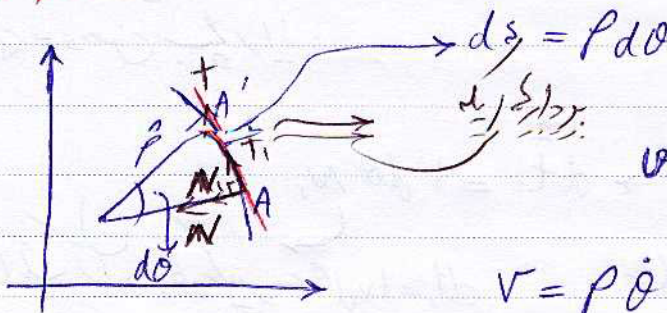 ds = ρdθ
t
A'
ρ
t₁
N₁
A
N
dθ
V = ρθ̇